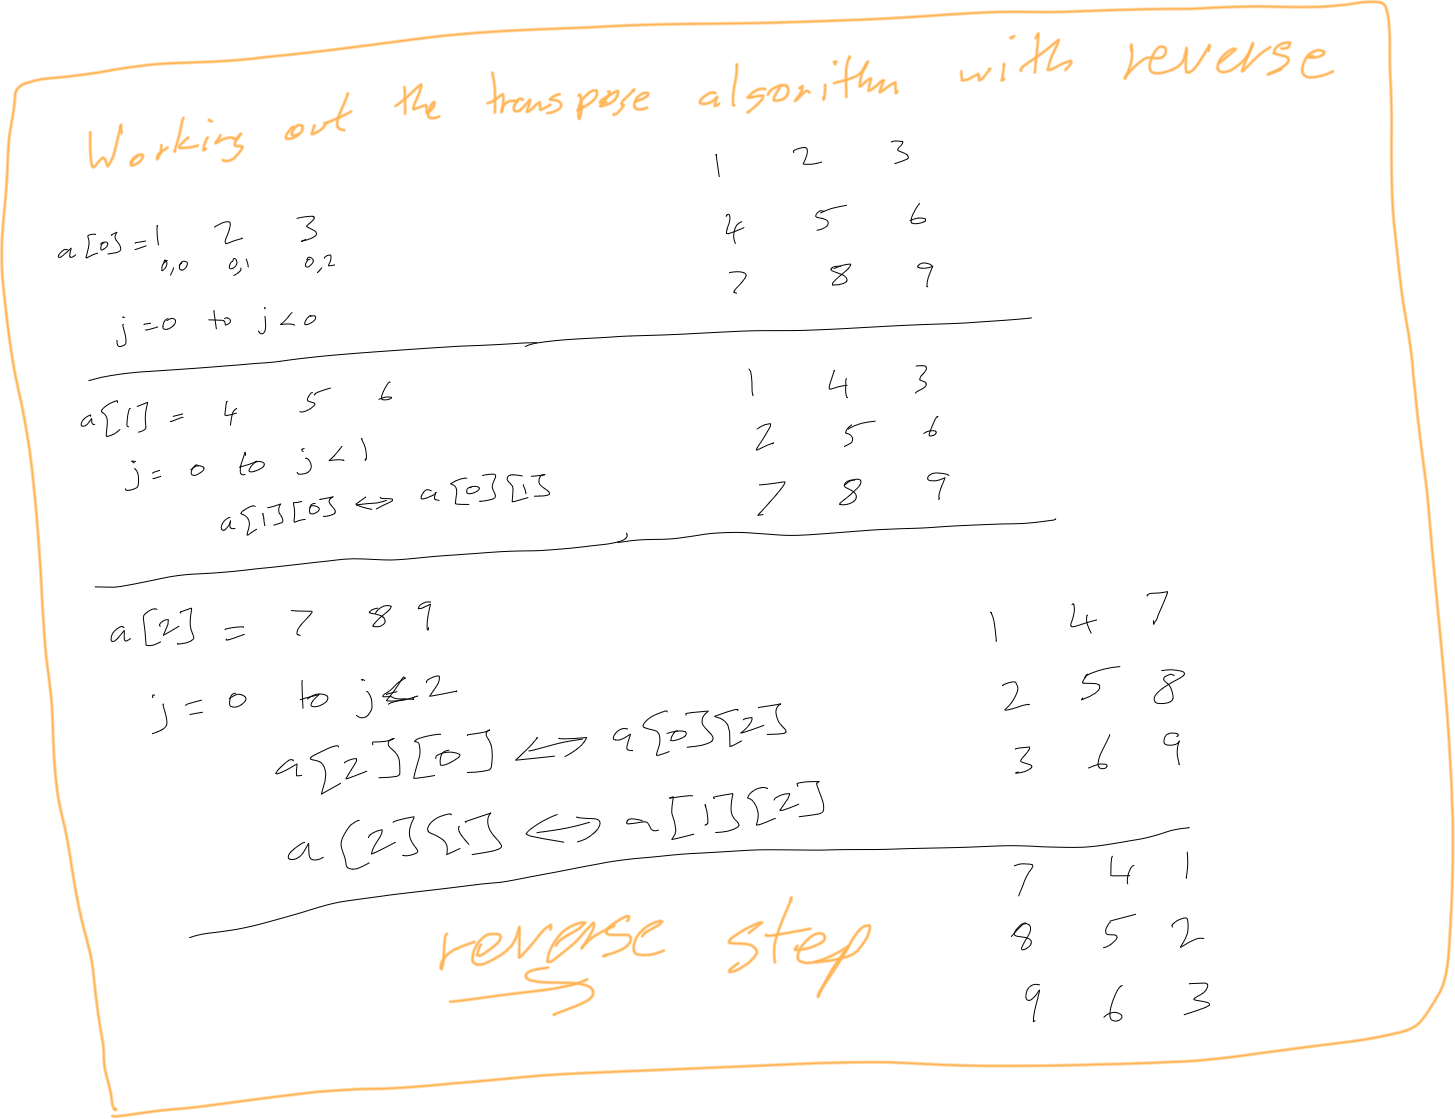 Working out the transpose algorithm with reverse
1 2 3
4 5 6
7 8 9
a[0] = 1 2 3
0,0 0,1 0,2
j = 0 to j < 0
a[1] = 4 5 6
j = 0 to j < 1
a[1][0] ⇔ a[0][1]
1 4 3
2 5 6
7 8 9
a[2] = 7 8 9
j = 0 to j < 2
a[2][0] ⇔ a[0][2]
a[2][1] ⇔ a[1][2]
1 4 7
2 5 8
3 6 9
reverse step
7 4 1
8 5 2
9 6 3